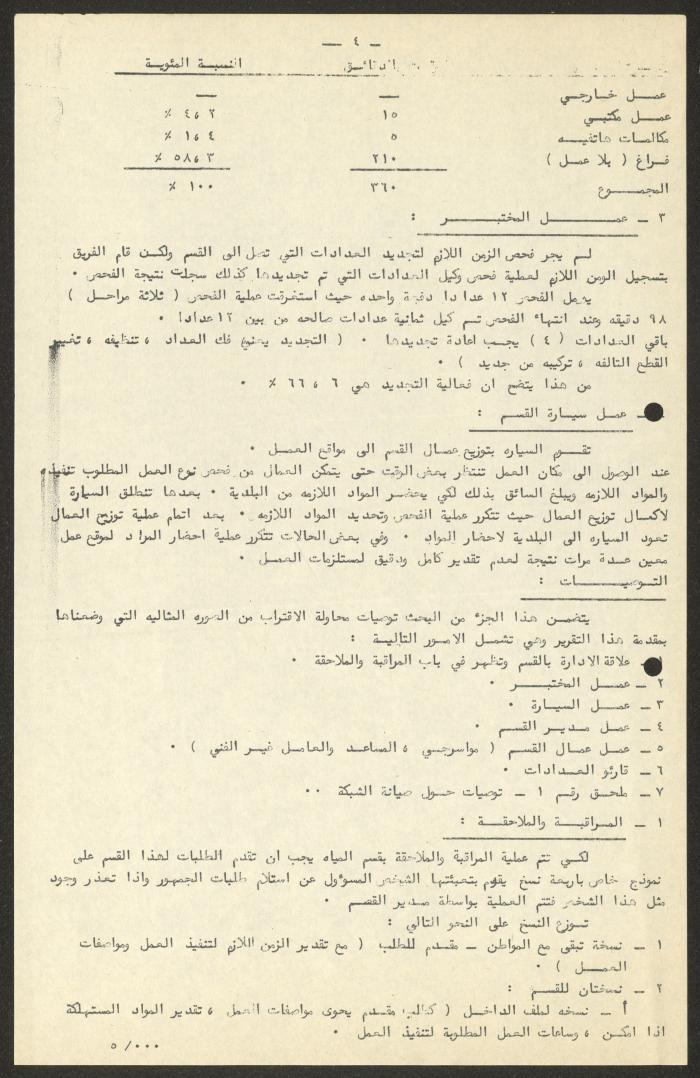 ـ ٤ ـ
بالدقائق النسبة المئوية
عمل خارجي ـ ـ
عمل مكتبي ١٥ ٢ ،٤ ٪
مكالمات هاتفيه ٥ ٤ ،١ ٪
فراغ ( بلا عمل ) ٢١٠ ٣ ،٥٨ ٪
المجموع ٣٦٠ ١٠٠ ٪
٣ ـ عمل المختبر :
لم يجر فحص الزمن اللازم لتجديد العدادات التي تصل الى القسم ولكن قام الفريق
بتسجيل الزمن اللازم لعملية فحص وكيل العدادات التي تم تجديدها كذلك سجلت نتيجة الفحص .
يعمل الفحص ١٢ عدادا دفعة واحده حيث استغرقت عملية الفحص ( ثلاثة مراحل )
٩٨ دقيقه وعند انتهاء الفحص تم كيل ثمانية عدادات صالحه من بين ١٢ عدادا .
باقي العدادات ( ٤ ) يجب اعادة تجديدها . ( التجديد يعني فك العداد ، تنظيفه ، تغيير
القطع التالفه ، تركيبه من جديد ) .
من هذا يتضح ان فعالية التجديد هي ٦ ،٦٦ ٪ .
ـ عمل سيارة القسم :
تقوم السياره بتوزيع عمال القسم الى مواقع العمل .
عند الوصول الى مكان العمل تنتظر بعض الوقت حتى يتمكن العمال من فحص نوع العمل المطلوب تنفيذه
والمواد اللازمه ويبلغ السائق بذلك لكي يحضر المواد اللازمه من البلدية . بعدها تنطلق السيارة
لاكمال توزيع العمال حيث تتكرر عملية الفحص وتحديد المواد اللازمه . بعد اتمام عملية توزيع العمال
تعود السياره الى البلدية لاحضار المواد . وفي بعض الحالات تتكرر عملية احضار المواد لموقع عمل
معين عدة مرات نتيجة لعدم تقدير كامل ودقيق لمستلزمات العمل .
التوصيات :
يتضمن هذا الجزء من البحث توصيات محاولة الاقتراب من الصوره المثاليه التي وضعناها
بمقدمة هذا التقرير وهي تشمل الامور التالية :
ـ علاقة الادارة بالقسم وتظهر في باب المراقبة والملاحقة .
٢ ـ عمل المختبر .
٣ ـ عمل السيارة .
٤ ـ عمل مدير القسم .
٥ ـ عمل عمال القسم ( مواسرجي ، المساعد والعامل غير الفني ) .
٦ ـ قارئو العدادات .
٧ ـ ملحق رقم ١ ـ توصيات حول صيانة الشبكة ..
١ ـ المراقبة والملاحقة :
لكي تتم عملية المراقبة والملاحقة بقسم المياه يجب ان تقدم الطلبات لهذا القسم على
نموذج خاص باربعة نسخ يقوم بتعبئتها الشخص المسؤول عن استلام طلبات الجمهور واذا تعذر وجود
مثل هذا الشخص فتتم العملية بواسطة مدير القسم .
توزع النسخ على النحو التالي :
١ ـ نسخة تبقى مع المواطن ـ مقدم للطلب ( مع تقدير الزمن اللازم لتنفيذ العمل ومواصفات
العمل ) .
٢ ـ نسختان للقسم :
أ ـ نسخه لملف الداخل ( كطلب مقدم يحوى مواصفات العمل ، تقدير المواد المستهلكة
اذا امكن ، وساعات العمل المطلوبة لتنفيذ العمل .
٥ / ...